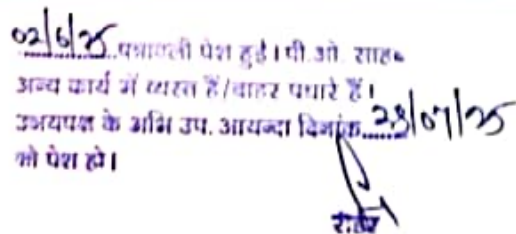 02/6/25 पत्रावली पेश हुई। पी.ओ. साहब
अन्य कार्य में व्यस्त हैं/बाहर पधारे हैं।
उभयपक्ष के अभि उप. आयन्दा दिनांक 23/07/25
को पेश हो।
रीडर